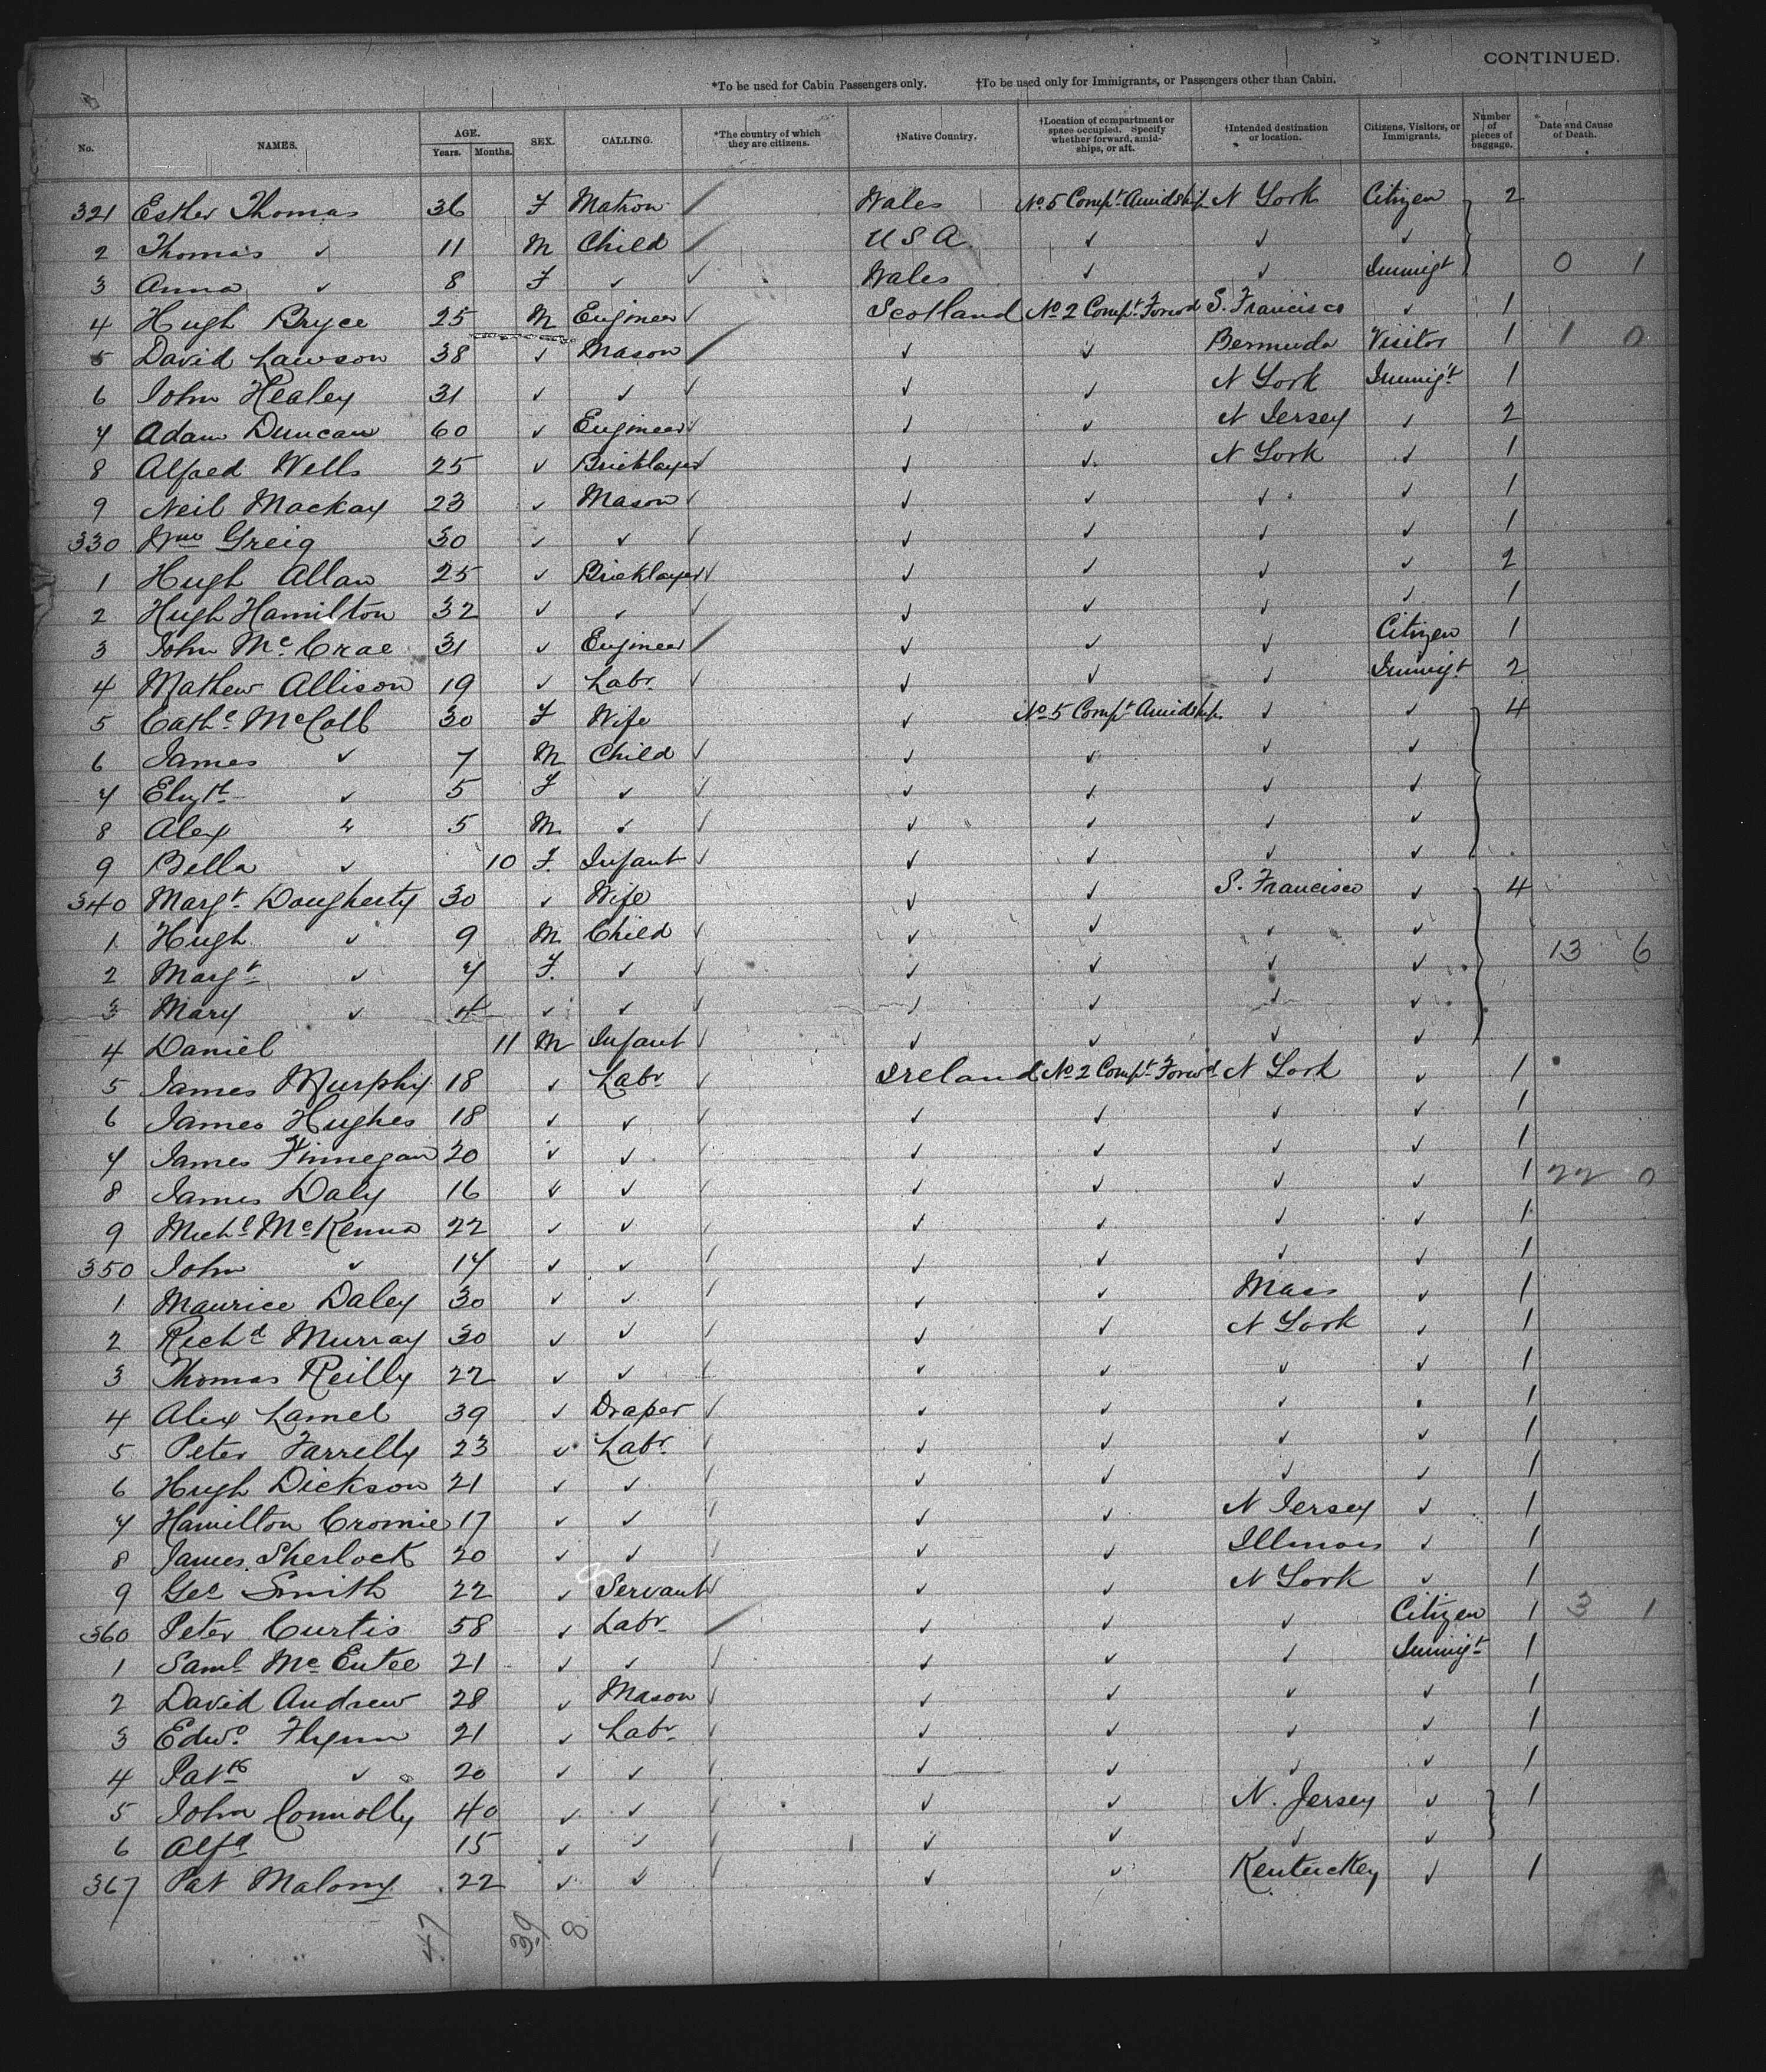 CONTINUED.
*To be used for Cabin Passengers only. †To be used only for Immigrants, or Passengers other than Cabin.
No. NAMES. AGE. Years. Months. SEX. CALLING. *The country of which they are citizens. †Native Country. †Location of compartment or space occupied. Specify whether forward, amidships, or aft. †Intended destination or location. Citizens, Visitors, or Immigrants. Number of pieces of baggage. Date and Cause of Death.
321 Esther Thomas 36 F Matron / Wales No 5 Compt Amidship N York Citizen 2
2 Thomas ✓ 11 M Child / U S A ✓ ✓ ✓
3 Anna ✓ 8 F ✓ ✓ Wales ✓ ✓ Immigt 0 1
4 Hugh Bryce 25 M Engineer ✓ Scotland No 2 Compt Forwd S. Francisco ✓ 1
5 David Lawson 38 ✓ Mason / ✓ ✓ Bermuda Visitor 1 1 0
6 John Healey 31 ✓ ✓ ✓ ✓ ✓ N York Immigt 1
7 Adam Duncan 60 ✓ Engineer ✓ ✓ ✓ N Jersey ✓ 2
8 Alfred Wells 25 ✓ Bricklayer ✓ ✓ ✓ N York ✓ 1
9 Neil Mackay 23 ✓ Mason ✓ ✓ ✓ ✓ ✓ 1
330 Wm Greig 30 ✓ ✓ ✓ ✓ ✓ ✓ ✓ 1
1 Hugh Allan 25 ✓ Bricklayer ✓ ✓ ✓ ✓ ✓ 2
2 Hugh Hamilton 32 ✓ ✓ ✓ ✓ ✓ ✓ ✓ 1
3 John McCrae 31 ✓ Engineer / ✓ ✓ ✓ Citizen 1
4 Mathew Allison 19 ✓ Labr ✓ ✓ ✓ ✓ Immigt 2
5 Cathe McColl 30 F Wife ✓ No 5 Compt Amidship ✓ ✓ 4
6 James ✓ 7 M Child ✓ ✓ ✓ ✓ ✓
7 Elizth ✓ 5 F ✓ ✓ ✓ ✓ ✓ ✓
8 Alex ✓ 5 M ✓ ✓ ✓ ✓ ✓ ✓
9 Bella ✓ 10 F. Infant ✓ ✓ ✓ ✓ ✓
340 Margt Dougherty 30 ✓ Wife ✓ ✓ S. Francisco ✓ 4
1 Hugh ✓ 9 M Child ✓ ✓ ✓ ✓ ✓
2 Margt ✓ 7 F. ✓ ✓ ✓ ✓ ✓ ✓ 13 6
3 Mary ✓ 4 ✓ ✓ ✓ ✓ ✓ ✓ ✓
4 Daniel 11 M Infant ✓ ✓ ✓ ✓ ✓
5 James Murphy 18 ✓ Labr ✓ Ireland No 2 Compt Forwd N York ✓ 1
6 James Hughes 18 ✓ ✓ ✓ ✓ ✓ ✓ ✓ 1
7 James Finnegan 20 ✓ ✓ ✓ ✓ ✓ ✓ 1
8 James Daly 16 ✓ ✓ ✓ ✓ ✓ ✓ ✓ 1 22 0
9 Michl McKenna 22 ✓ ✓ ✓ ✓ ✓ ✓ ✓ 1
350 John ✓ 17 ✓ ✓ ✓ ✓ ✓ ✓ ✓ 1
1 Maurice Daley 30 ✓ ✓ ✓ ✓ ✓ Mass ✓ 1
2 Richd Murray 30 ✓ ✓ ✓ ✓ ✓ N York ✓ 1
3 Thomas Reilly 22 ✓ ✓ ✓ ✓ ✓ ✓ ✓ 1
4 Alex Lamel 39 ✓ Draper ✓ ✓ ✓ ✓ ✓ 1
5 Peter Farrelly 23 ✓ Labr ✓ ✓ ✓ ✓ ✓ 1
6 Hugh Dickson 21 ✓ ✓ ✓ ✓ ✓ ✓ ✓ 1
7 Hamilton Cromie 17 ✓ ✓ ✓ ✓ ✓ N Jersey ✓ 1
8 James Sherlock 20 ✓ ✓ ✓ ✓ ✓ Illinois ✓ 1
9 Geo Smith 22 ✓ Servant ✓ ✓ ✓ N York ✓ 1
360 Peter Curtis 58 ✓ Labr / ✓ ✓ ✓ Citizen 1 3 1
1 Saml McEntee 21 ✓ ✓ ✓ ✓ ✓ ✓ Immigt 1
2 David Andrew 28 ✓ Mason ✓ ✓ ✓ ✓ ✓ 1
3 Edwd Flynn 21 ✓ Labr ✓ ✓ ✓ ✓ ✓ 1
4 Patk ✓ 20 ✓ ✓ ✓ ✓ ✓ ✓ ✓ 1
5 John Connolly 40 ✓ ✓ ✓ ✓ ✓ N. Jersey ✓ 1
6 Alfd 15 ✓ ✓ ✓ ✓ ✓ ✓ ✓
367 Pat Malony 22 ✓ ✓ ✓ ✓ ✓ Kentucky ✓ 1
47 39 8